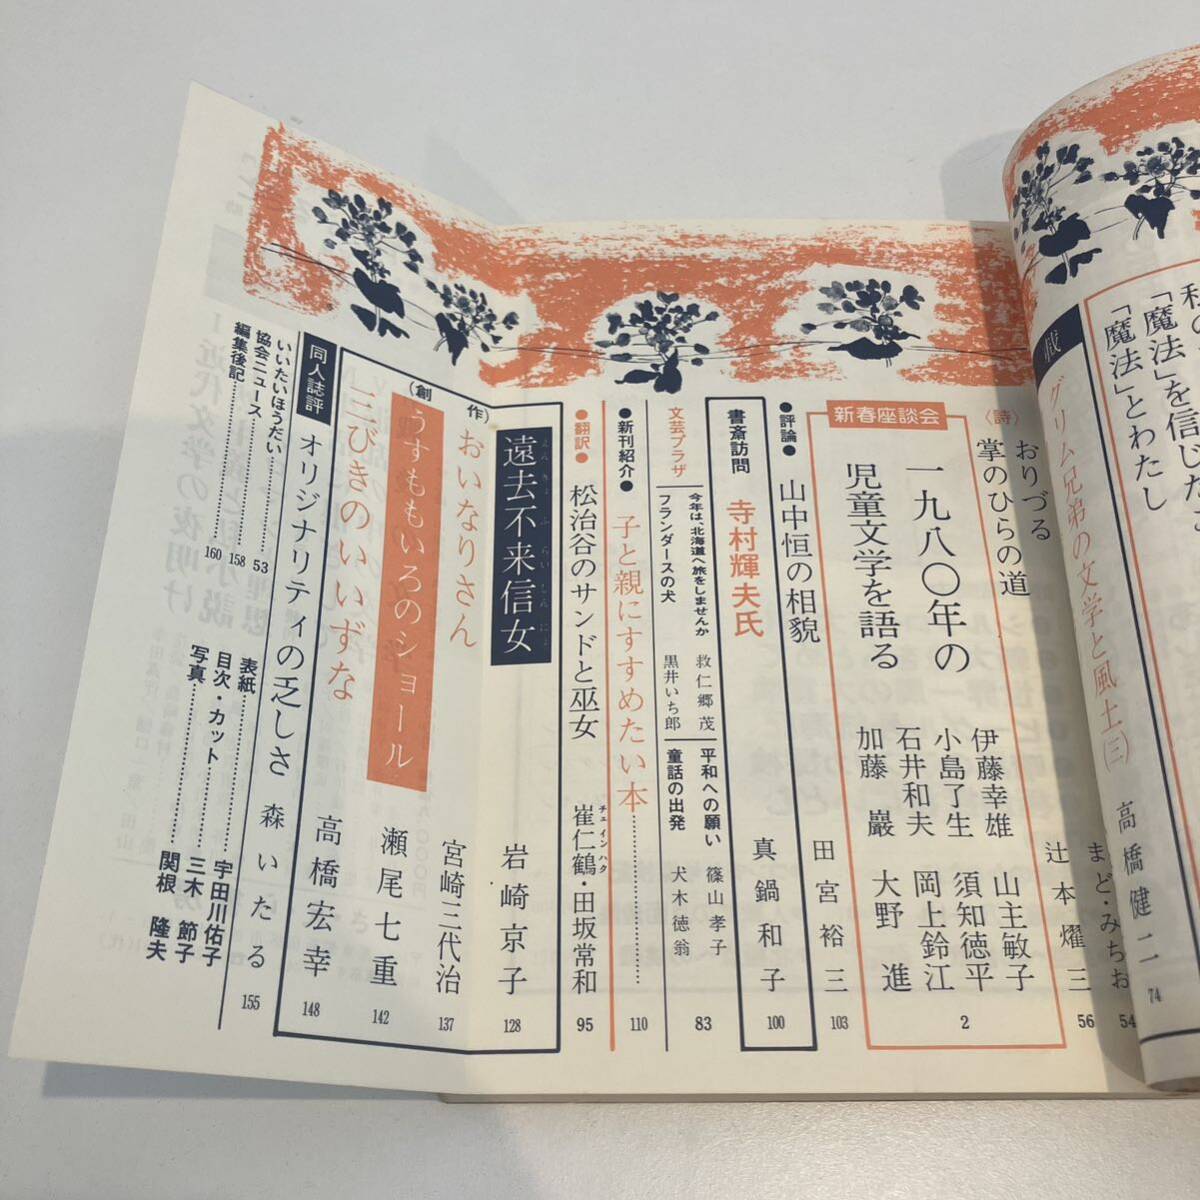 私の
「魔法」を信じた
「魔法」とわたし
グリム兄弟の文学と風土(三)
高橋健二
74
〈詩〉
おりづる
まど・みちお
54
掌のひらの道
辻本耀三
56
新春座談会
一九八〇年の
児童文学を語る
伊藤幸雄
小島了生
石井和夫
加藤 巖
山主敏子
須知徳平
岡上鈴江
大野 進
2
●評論●
山中恒の相貌
田宮裕三
103
書斎訪問
寺村輝夫氏
真鍋和子
100
文芸プラザ
今年は、北海道へ旅をしませんか
救仁郷茂
フランダースの犬
黒井いち郎
平和への願い
篠山孝子
童話の出発
犬木徳翁
83
●新刊紹介●
子と親にすすめたい本
110
●翻訳●
松治谷のサンドと巫女
崔仁鶴・田坂常和
チェインハク
95
遠去不来信女
岩崎京子
128
(創作)
おいなりさん
宮崎三代治
137
うすももいろのショール
瀬尾七重
142
三びきのいいずな
高橋宏幸
148
同人誌評
オリジナリティの乏しさ
森いたる
155
いいたいほうだい
53
協会ニュース
158
編集後記
160
表紙
宇田川佑子
目次・カット
三木節子
写真
関根隆夫